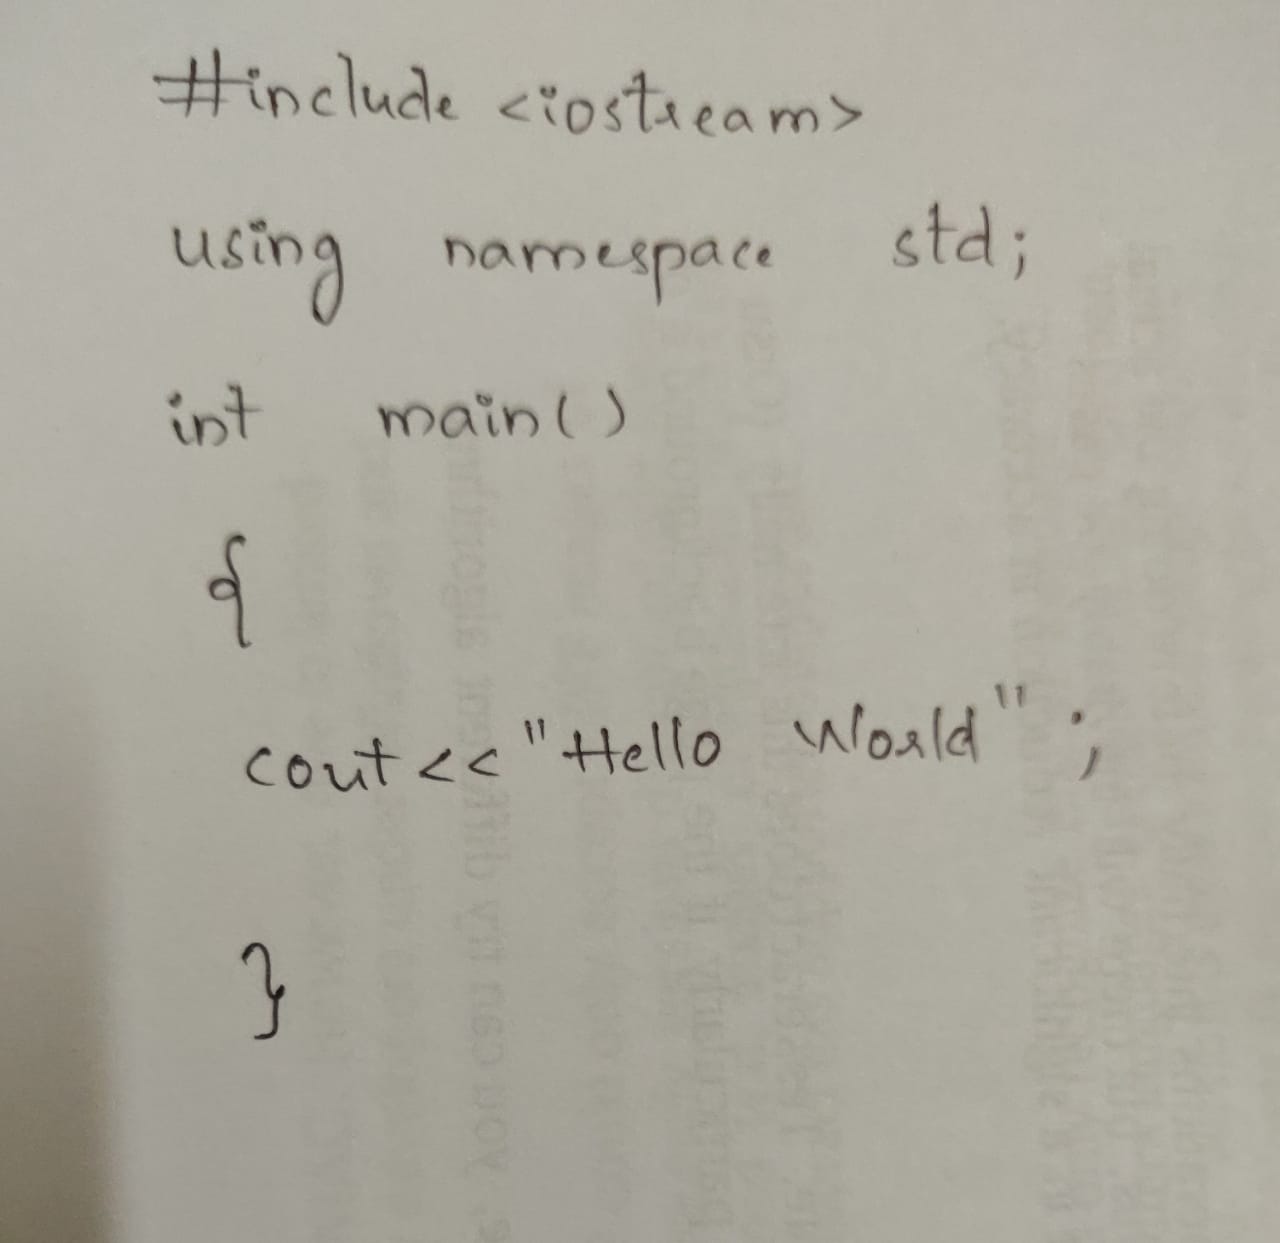 #include <iostream>
using namespace std;
int main()
{
cout<<"Hello World";
}